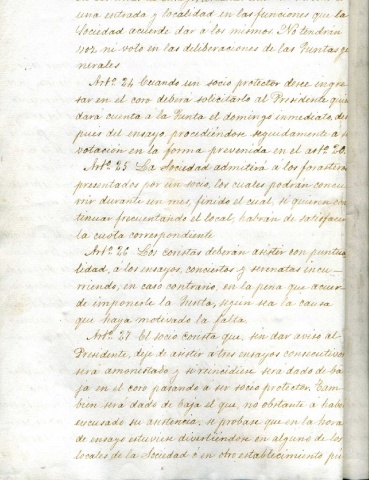 una entrada y localidad en las funciones que la
Sociedad acuerde dar a los mismos. No tendrán
voz ni voto en las deliberaciones de las Juntas ge
nerales
Artº 24 Cuando un socio protector desee ingre
sar en el coro deberá solicitarlo al Presidente quien
dará cuenta á la Junta el domingo inmediato, des
pues del ensayo, procediéndose seguidamente a
votacion en la forma prevenida en el artº 20.
Artº 25 La Sociedad admitirá á los forasteros
presentados por un socio, los cuales podrán concu
rrir durante un mes, finido el cual, si quieren con
tinuar frecuentando el local, habrán de satisfacer
la cuota correspondiente
Artº 26 Los coristas deberán asistir con puntua
lidad, á los ensayos, conciertos y serenatas incu-
rriendo, en caso contrario, en la pena que acuer
de imponerle la Junta, segun sea la causa
que haya motivado la falta.
Artº 27 El socio corista que, sin dar aviso al
Presidente, deje de asistir a tres ensayos consecutivos
será amonestado y si reincidiese será dado de ba
ja en el coro pasando á ser socio protector. Tam
bien será dado de baja el que, no obstante á haber
escusado su asistencia, si probase que en la hora
de ensayo estuviese divirtiéndose en alguno de los
locales de la Sociedad ó en otro establecimiento pú